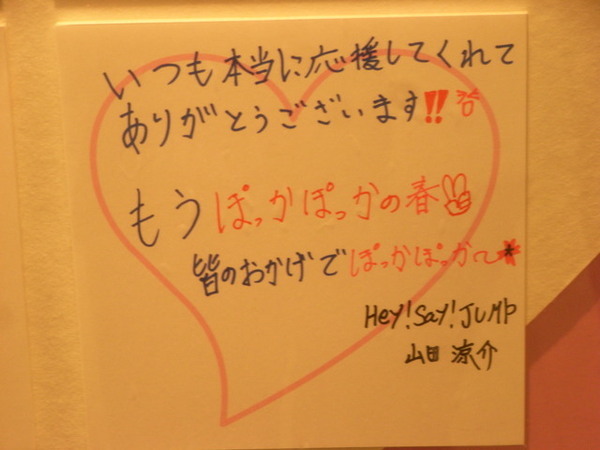 いつも本当に応援してくれて
ありがとうございます!!
もうぽっかぽっかの春
皆のおかげでぽっかぽっか〜
Hey!Say!JUMP
山田涼介